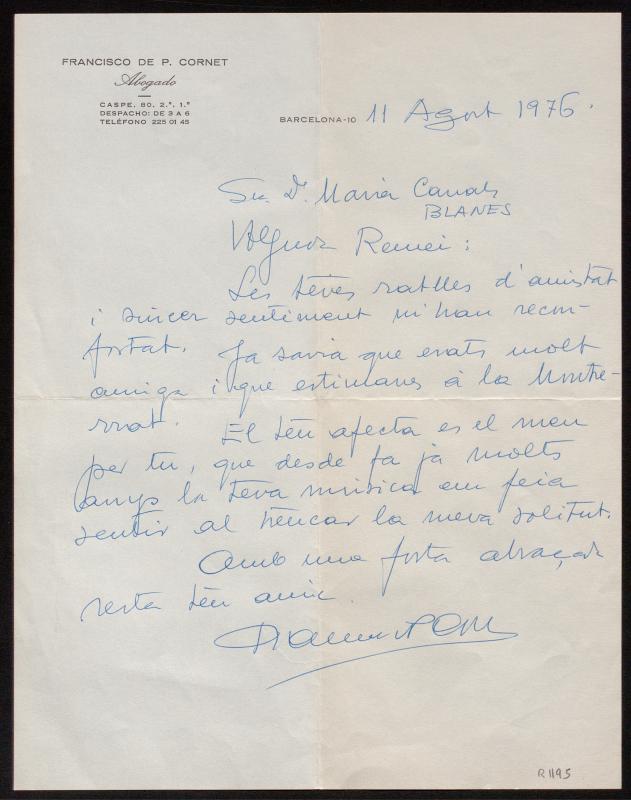 FRANCISCO DE P. CORNET
Abogado
CASPE, 80, 2.º, 1.ª
DESPACHO: DE 3 A 6
TELÉFONO 225 01 45
BARCELONA-10 11 Agost 1976.
Sra. Dª. Maria Canals
BLANES
Remei:
Les téves ratlles d'amistat
i sincer sentiment m'han recon-
fortat. Ja savia que erats molt
amiga i que estimaves á la Montse-
rrat. El téu afecta es el meu
per tu, que desde fa ja molts
anys la teva música em feia
sentir al trencar la meva solitut.
Amb una forta abraçada
resta téu amic.
R 1195